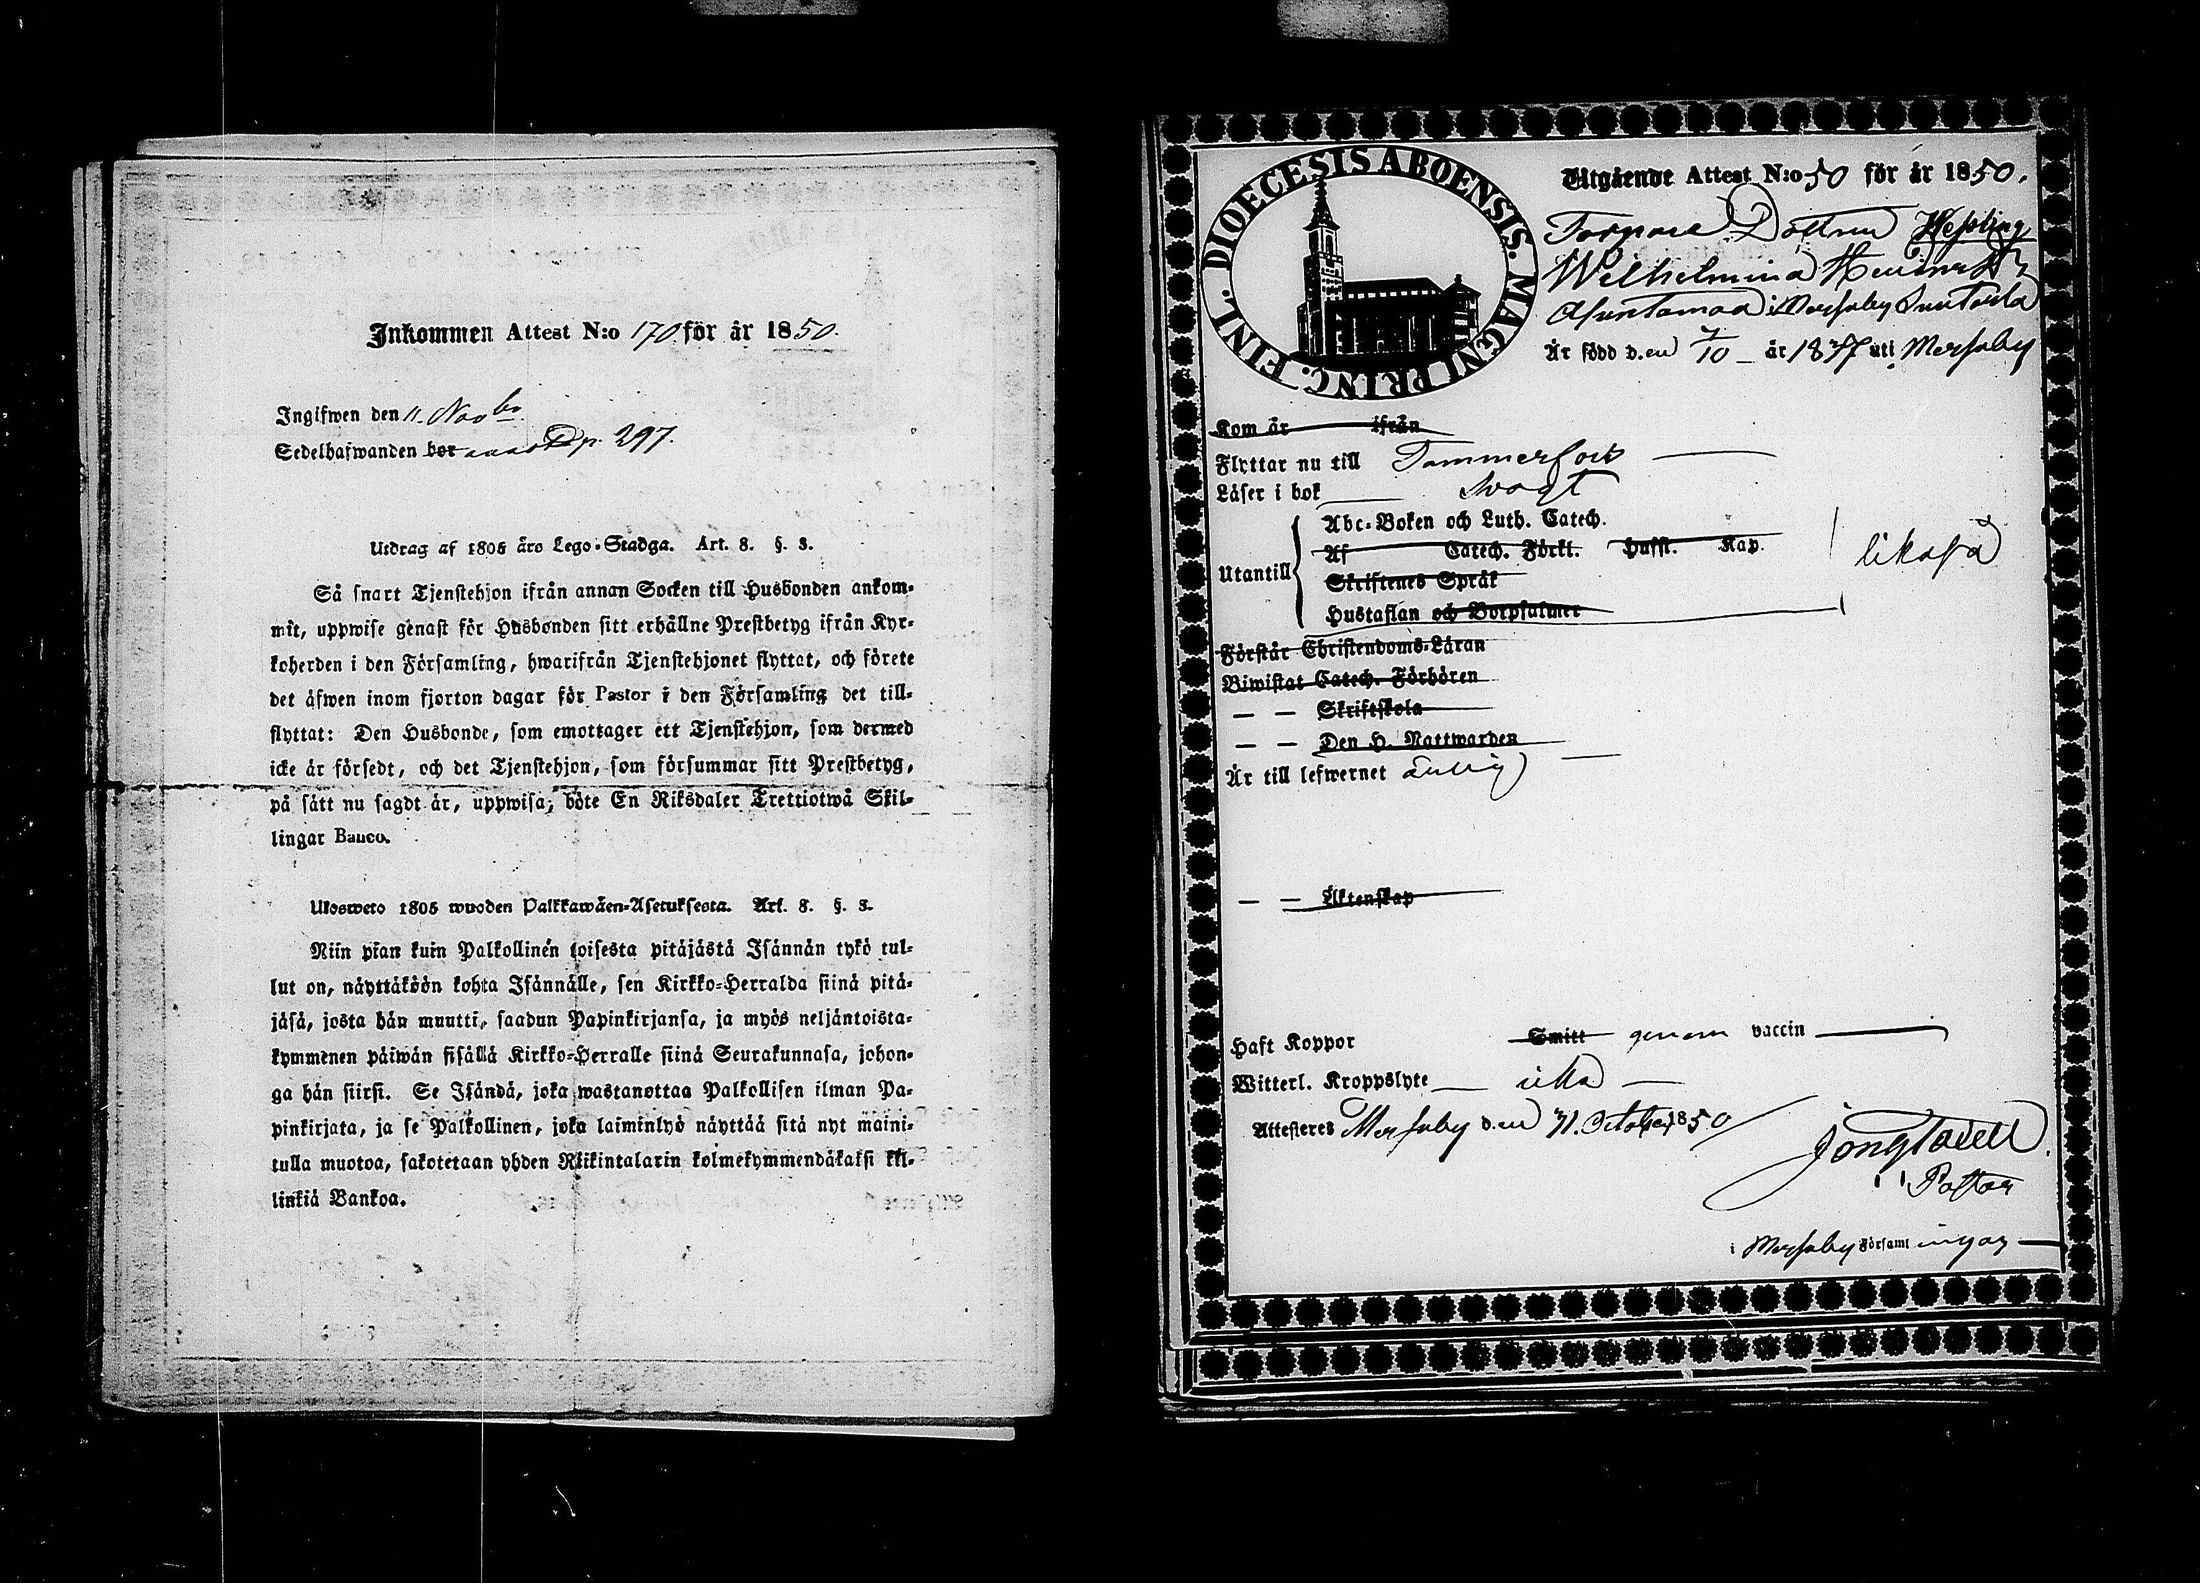 Inkommen Attest N:o 170 för år 1850.
Ingifwen den 11. Nov br
Sedelhafwanden bor p. 297.
Utdrag af 1805 års Lego-Stadga. Art. 8. §. 3.
Så snart Tjenstehjon ifrån annan Socken till Husbonden ankom-
mit, uppwise genast för Husbonden sitt erhållne Prestbetyg ifrån Kyr-
koherden i den Församling, hwarifrån Tjenstehjonet flyttat, och förete
det äfwen inom fjorton dagar för Pastor i den Församling det till-
flyttat: Den Husbonde, som emottager ett Tjenstehjon, som dermed
icke är försedt, och det Tjenstehjon, som försummar sitt Prestbetyg,
på sätt nu sagdt är, uppwisa, böte En Riksdaler Trettiotwå Skil-
lingar Banco.
Ulosweto 1805 wuoden Palkkawäen-Asetuksesta. Art. 8. §. 3.
Niin pian kuin Palkollinen toisesta pitäjästä Isännän tykö tul-
lut on, näyttäköön kohta Isännälle, sen Kirkko-Herralda siinä pitä-
jäsä, josta hän muutti, saadun Papinkirjansa, ja myös neljäntoista-
kymmenen päiwän sisällä Kirkko-Herralle siinä Seurakunnasa, johon-
ga hän siirsi. Se Isändä, joka wastanottaa Palkollisen ilman Pa-
pinkirjata, ja se Palkollinen, joka laiminlyö näyttää sitä nyt maini-
tulla muotoa, sakotetaan yhden Riikintalarin kolmekymmendäkaksi kil-
linkiä Bankoa.
DIOECESIS ABOENSIS. MAGNI PRINC. FINL.
Utgående Attest N:o 50 för år 1850.
Torpare Dottren
Wilhelmina
i Mersaby
Är född d.en 7/10 år 1837 uti Mersaby
Kom år ifrån
Flyttar nu till Tammerfors
Läser i bok swagt
Utantill
Abc-Boken och Luth. Catech.
Af Catech. Förkl. Hufst. Kap.
Skriftenes Språk
Hustaflan och Botpsalmer
likaså
Förstår Christendoms-Läran
Biwistat Catech. Förhören
— — Skriftskola
— — Den H. Nattwarden
Är till lefwernet ärlig
— — Äktenskap
Haft Koppor Smitt genom vaccin
Witterl. Kroppslyte icke
Attesteres Mersaby d.en 31. October 1850
Pastor
i Mersaby Församl ingar